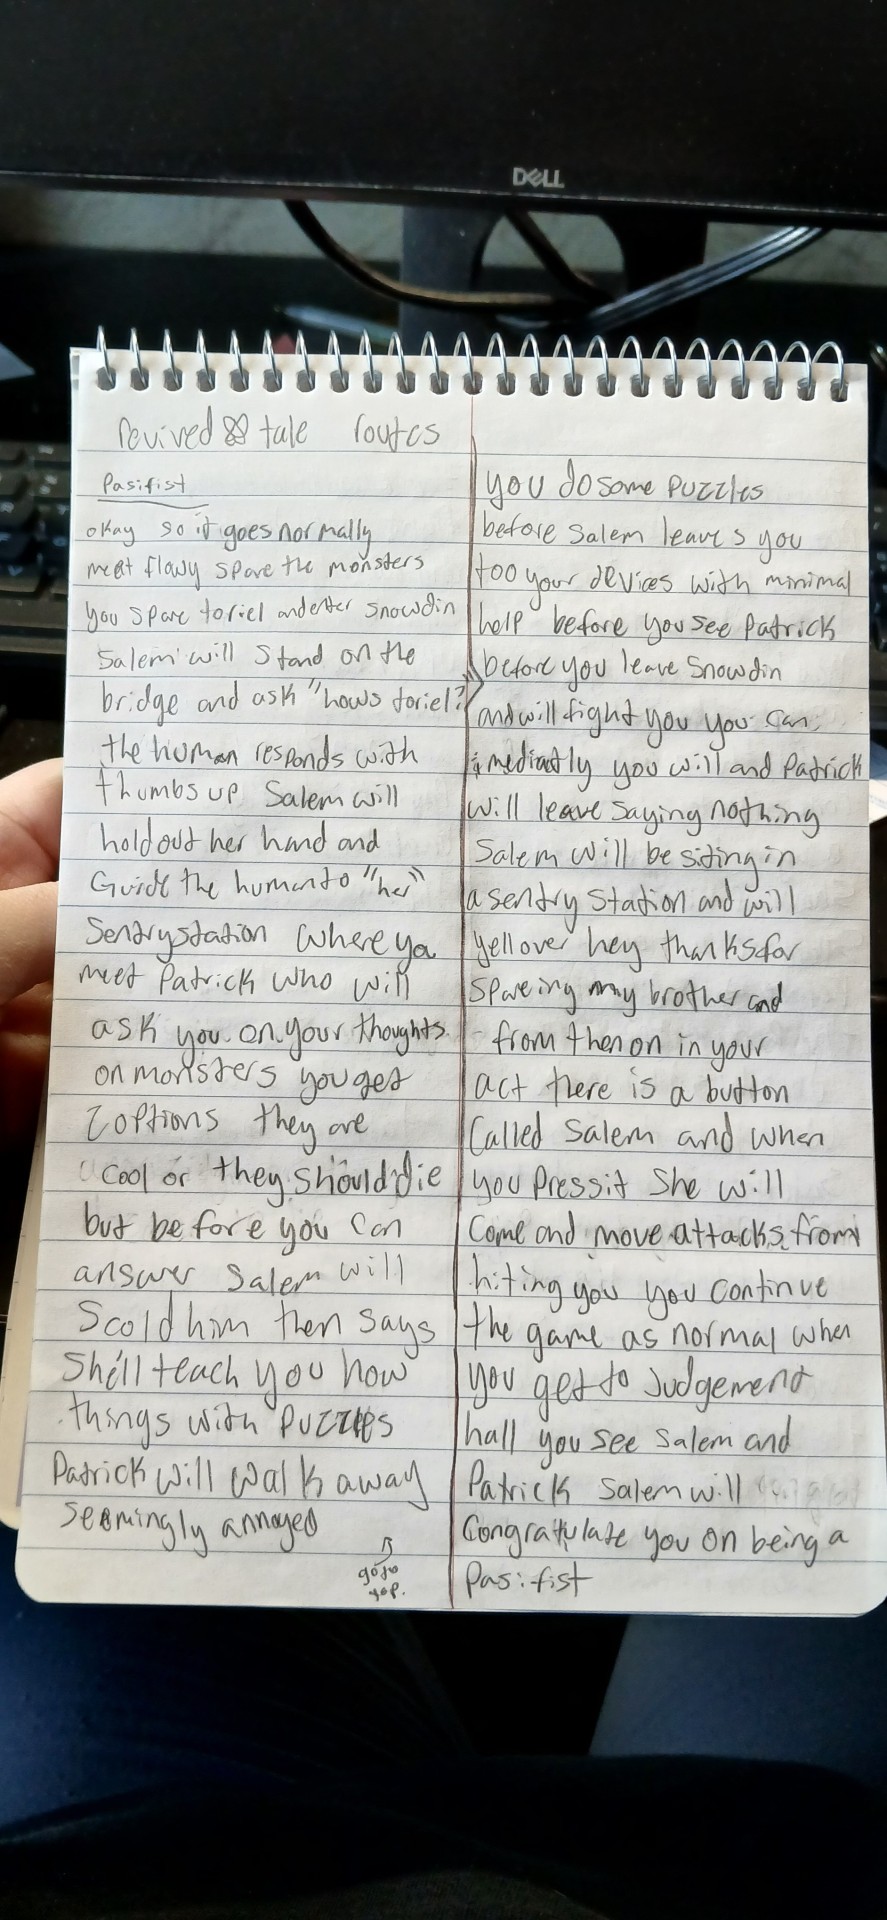 DELL
revived tale routes
Pasifist
okay so it goes normally
meet flowy spare the monsters
you spare toriel and enter snowdin
Salem will stand on the
bridge and ask "hows toriel?"
the human responds with
thumbs up Salem will
hold out her hand and
Guide the human to "her"
Sentry station where you
meet Patrick who will
ask you on your thoughts
on monsters you get
2 options they are
cool or they should die
but before you can
answer Salem will
Scold him then says
She'll teach you how
things with Puzzles
Patrick will walk away
seemingly annoyed
go to
top.
you do some Puzzles
before Salem leaves you
too your devices with minimal
help before you see Patrick
before you leave Snowdin
and will fight you you can
imediatly you will and Patrick
will leave saying nothing
Salem will be siting in
a sentry station and will
yell over hey thanks for
Spareing my brother and
from then on in your
act there is a button
Called Salem and when
you Press it She will
Come and move attacks from
hiting you you continue
the game as normal when
you get to Judgement
hall you see Salem and
Patrick Salem will
Congratulate you on being a
Pasifist